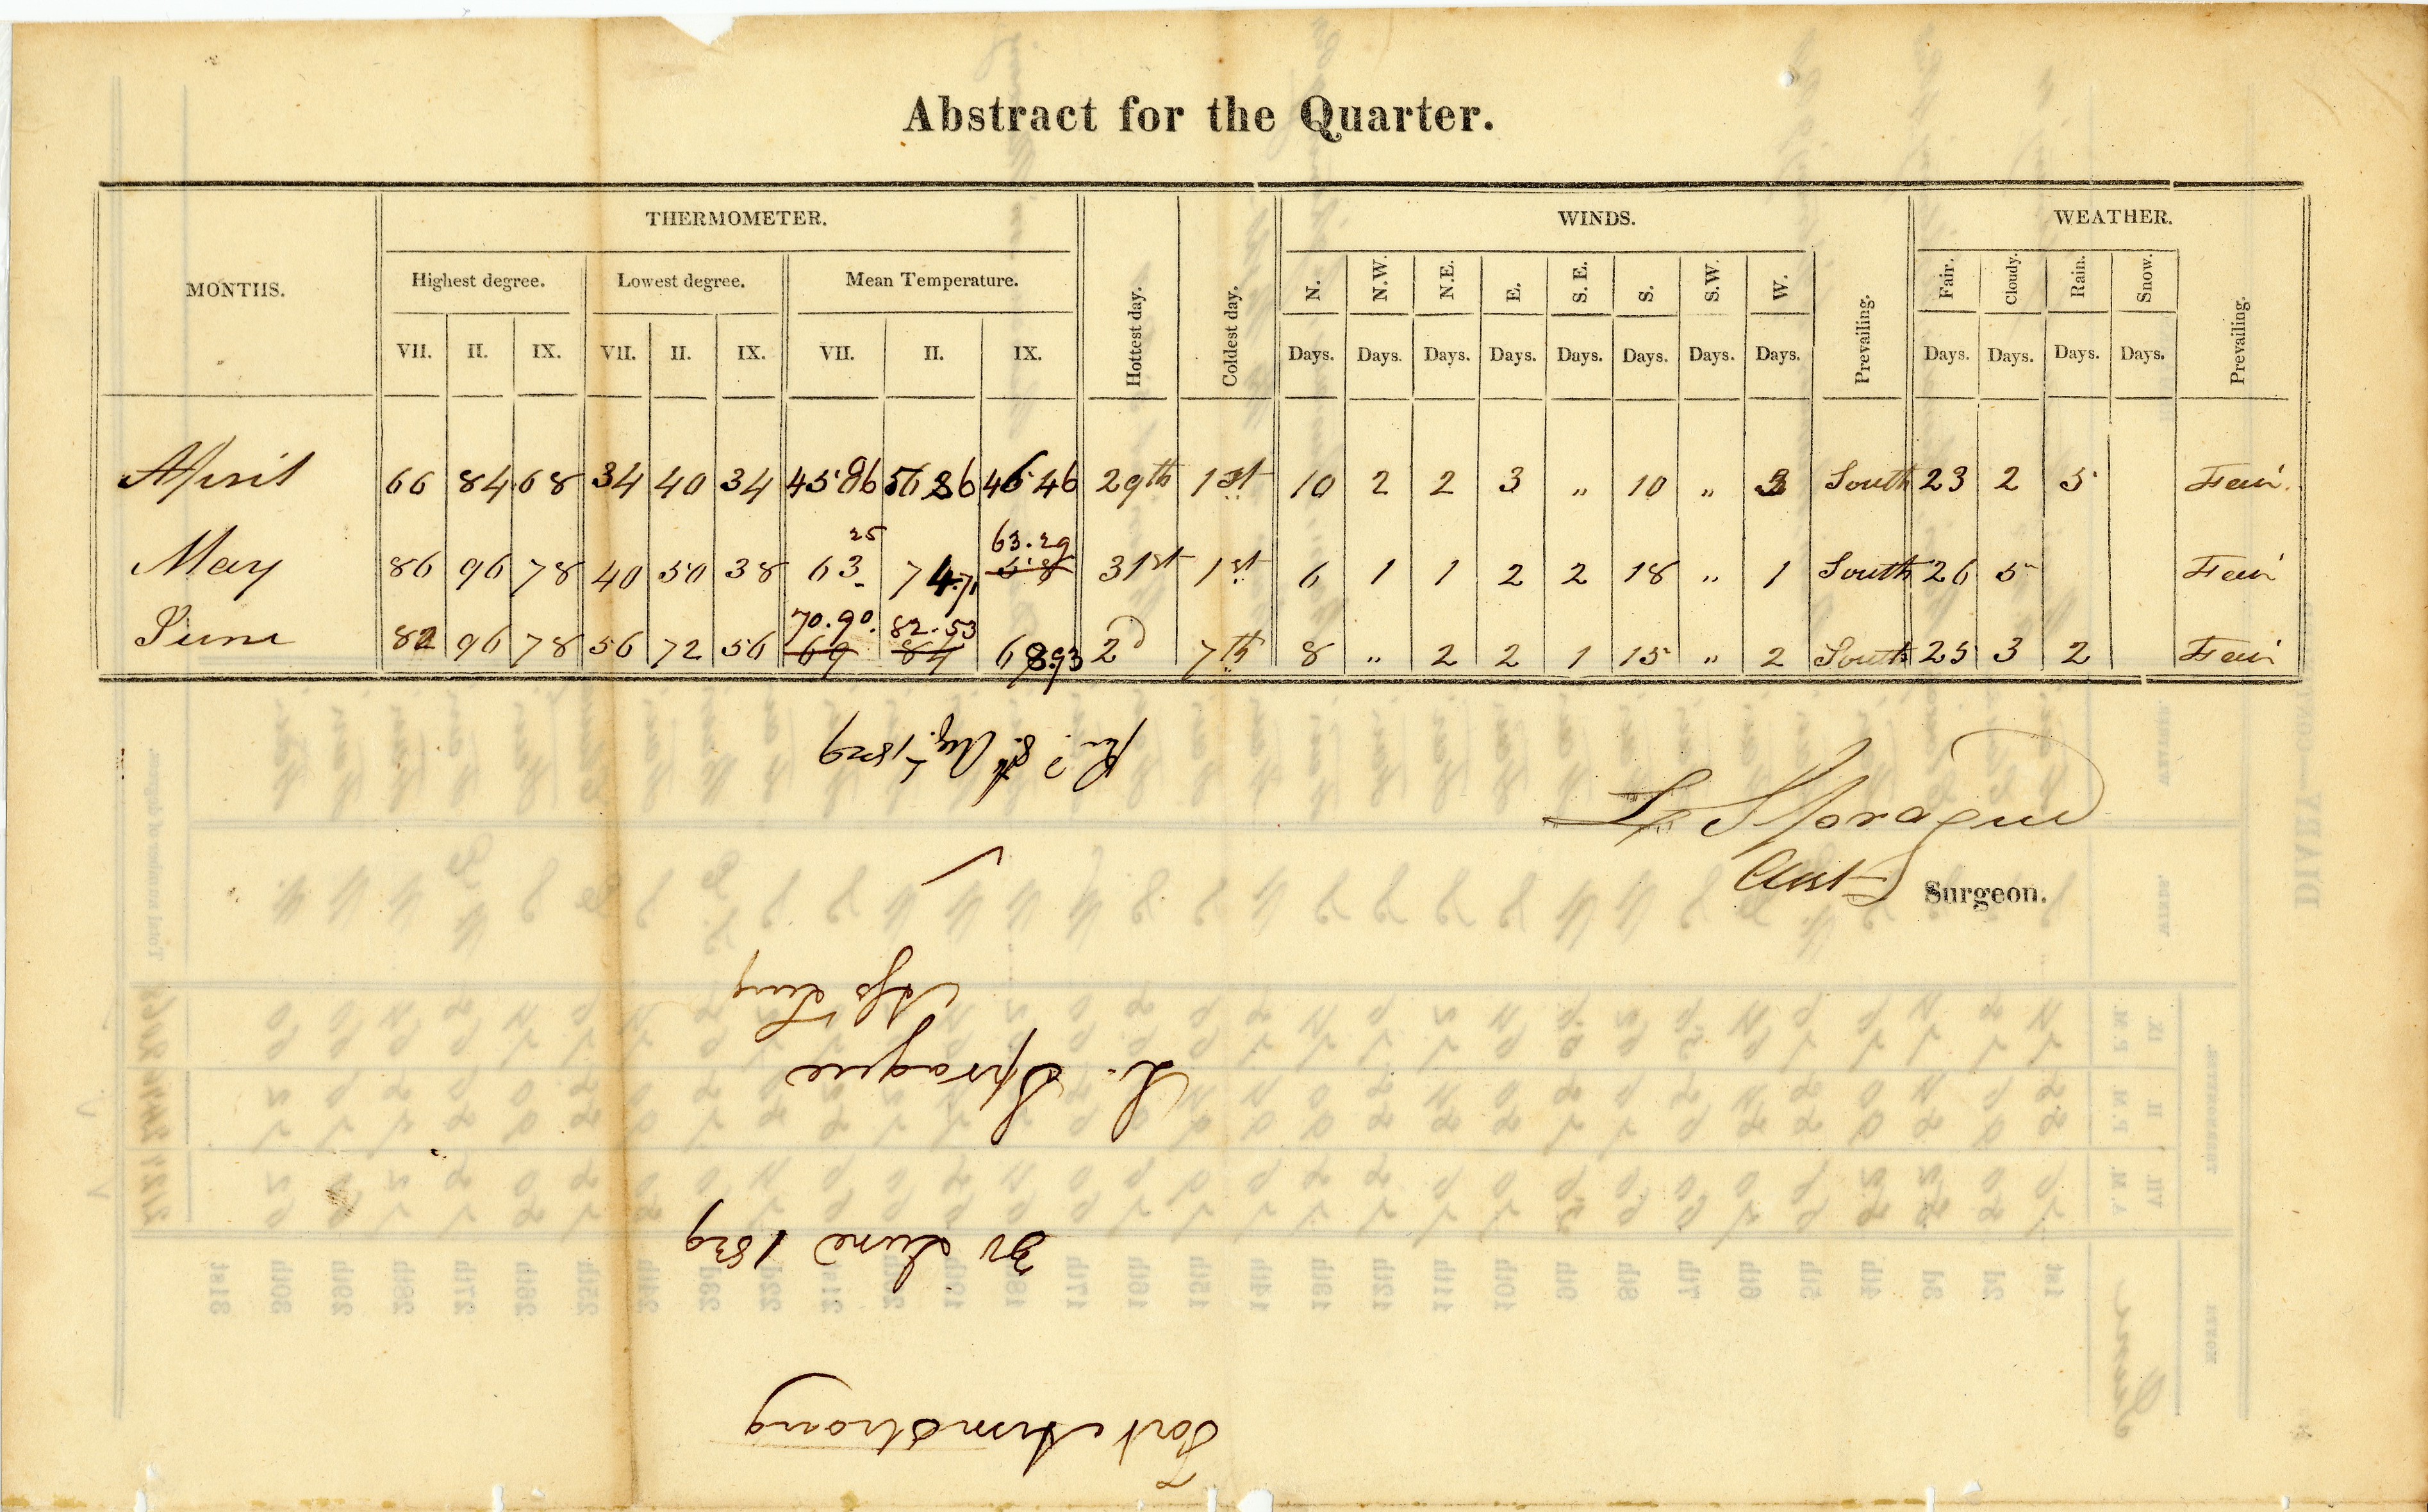 Abstract for the Quarter.
MONTHS. THERMOMETER. Hottest day. Coldest day. WINDS. WEATHER.
Highest degree. Lowest degree. Mean Temperature. N. N.W. N.E. E. S. E. S. S.W. W. Prevailing. Fair. Cloudy. Rain. Snow. Prevailing.
VII. II. IX. VII. II. IX. VII. II. IX. Days. Days. Days. Days. Days. Days. Days. Days. Days. Days. Days. Days.
April 66 84 68 34 40 34 45.86 56 86 46.46 29th 1st 10 2 2 3 " 10 " 3 South 23 2 5 Fair.
25 63.29
May 86 96 78 40 50 38 63 74.71 58 31st 1st 6 1 1 2 2 18 " 1 South 26 5 Fair
70.90. 82.53
June 82 96 78 56 72 56 69 84 68.93 2d 7th 8 " 2 2 1 15 " 2 South 25 3 2 Fair
L Sprague
Asst Surgeon.
Fort Armstrong
30 June 1829
L. Sprague
Recd. 8th Augt. 1829